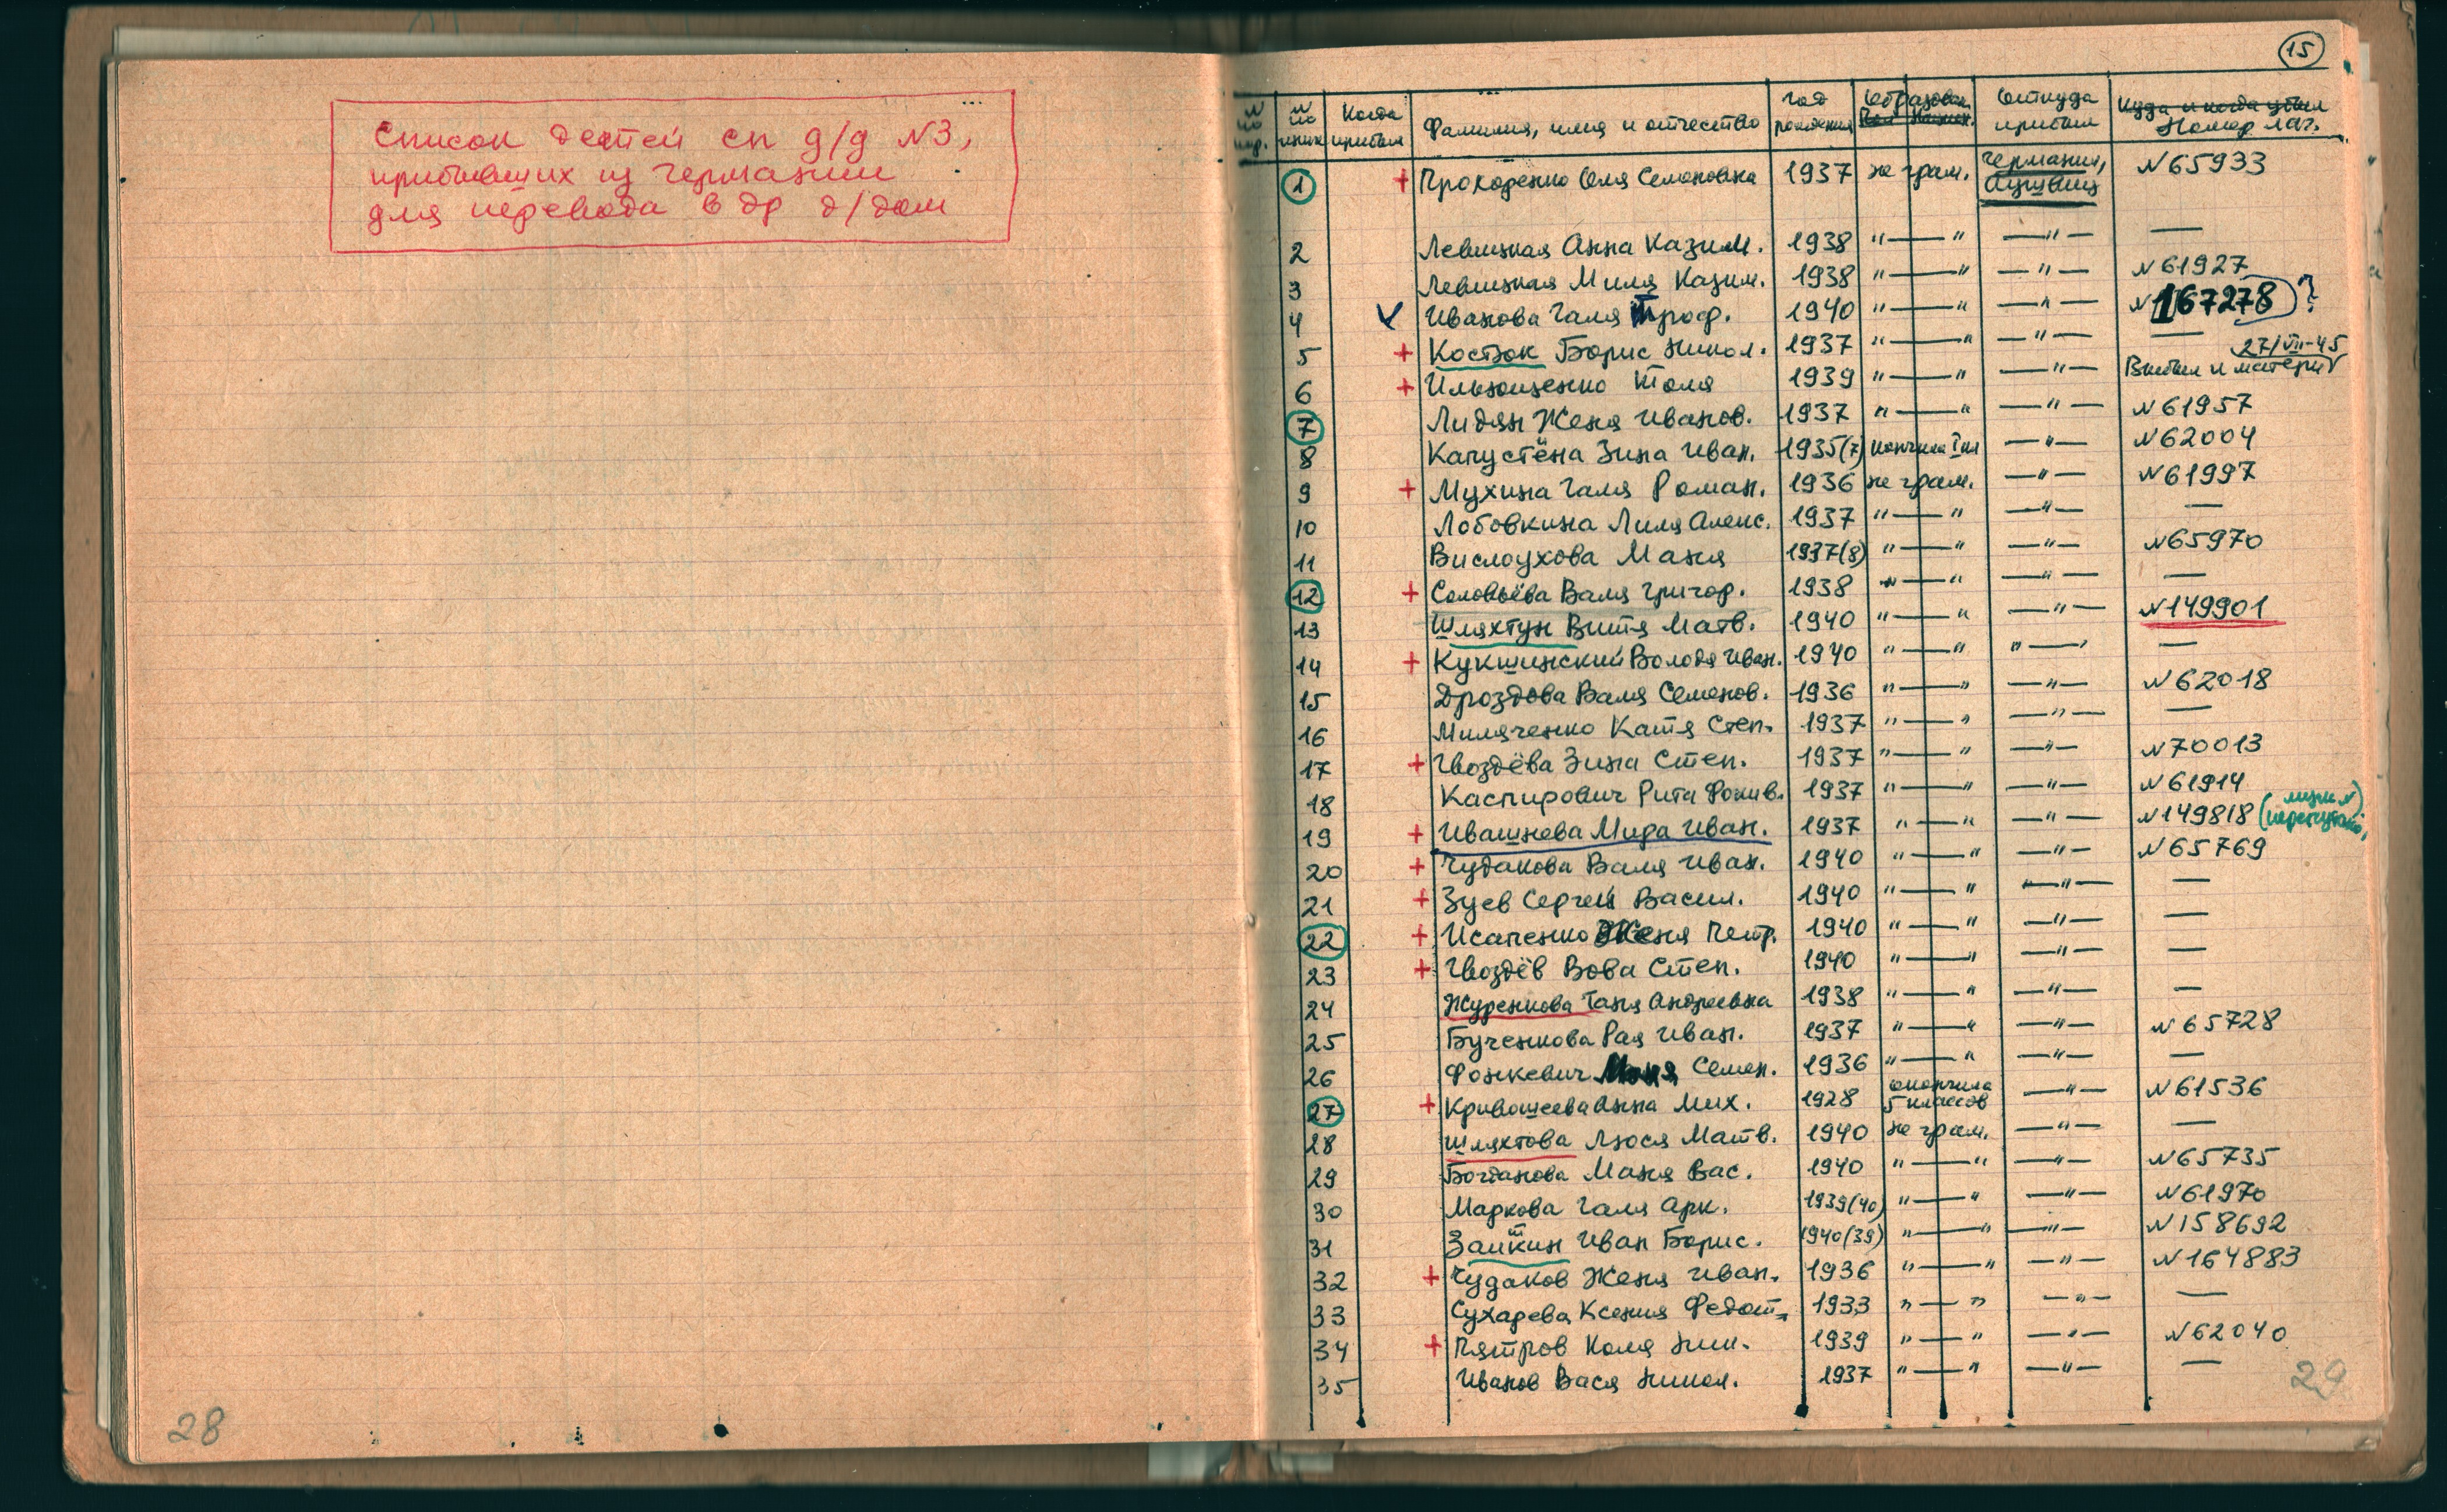 Список детей сп д/д №3,
прибывших из Германии
для перевода в др д/дом
28
15
№ по пор.
№ по
Когда прибыл
Фамилия, имя и отчество
год рождения
Образован.
Откуда прибыл
Куда и когда убыл
Номер лаг.
1 + Прохоренко Оля Семеновна 1937 не грам. Германия, Аушвиц №65933
2 Левицкая Анна Казим. 1938 "—" —"— —
3 Левицкая Миля Казим. 1938 "—" —"— №61927
4 ✓ Иванова Галя Троф. 1940 "—" —"— №167278 ?
5 + Костюк Борис Никол. 1937 "—" —"— —
6 + Ильющенко Толя 1939 "—" —"— Выбыл к матери 27/VII-45
7 Лидян Женя Иванов. 1937 "—" —"— №61957
8 Капустёна Зина Иван. 1935(7) кончила I кл —"— №62004
9 + Мухина Галя Роман. 1936 не грам. —"— №61997
10 Лобовкина Лиля Алекс. 1937 "—" —"— —
11 Вислоухова Маня 1937(8) "—" —"— №65970
12 + Соловьёва Валя Григор. 1938 "—" —"— —
13 Шляхтун Витя Матв. 1940 "—" —"— №149901
14 + Кукшинский Володя Иван. 1940 "—" "—" —
15 Дроздова Валя Семенов. 1936 "—" —"— №62018
16 Миляченко Катя Степ. 1937 "—" —"— —
17 + Гвоздёва Зина Степ. 1937 "—" —"— №70013
18 Каспирович Рита Фомив. 1937 "—" —"— №61914
19 + Ивашнева Мира Иван. 1937 "—" —"— №149818
20 + Чудакова Валя Иван. 1940 "—" —"— №65769
21 + Зуев Сергей Васил. 1940 "—" —"— —
22 + Исаченко Женя Петр. 1940 "—" —"— —
23 + Гвоздёв Вова Степ. 1940 "—" —"— —
24 Журенкова Таня Андреевна 1938 "—" —"— —
25 Бученкова Рая Иван. 1937 "—" —"— №65728
26 Фонкевич Маня Семен. 1936 "—" —"— —
27 + Кривошеева Анна Мих. 1928 окончила 5 классов —"— №61536
28 Шляхтова Люся Матв. 1940 не грам. —"— —
29 Богданова Маня Вас. 1940 "—" —"— №65735
30 Маркова Галя Арк. 1939(40) "—" —"— №61970
31 Заикин Иван Борис. 1940(39) "—" —"— №158692
32 + Чудаков Женя Иван. 1936 "—" —"— №164883
33 Сухарева Ксения Федот. 1933 "—" —"— —
34 + Пятров Коля Ник. 1939 "—" —"— №62040
35 Иванов Вася Никол. 1937 "—" —"— —
29